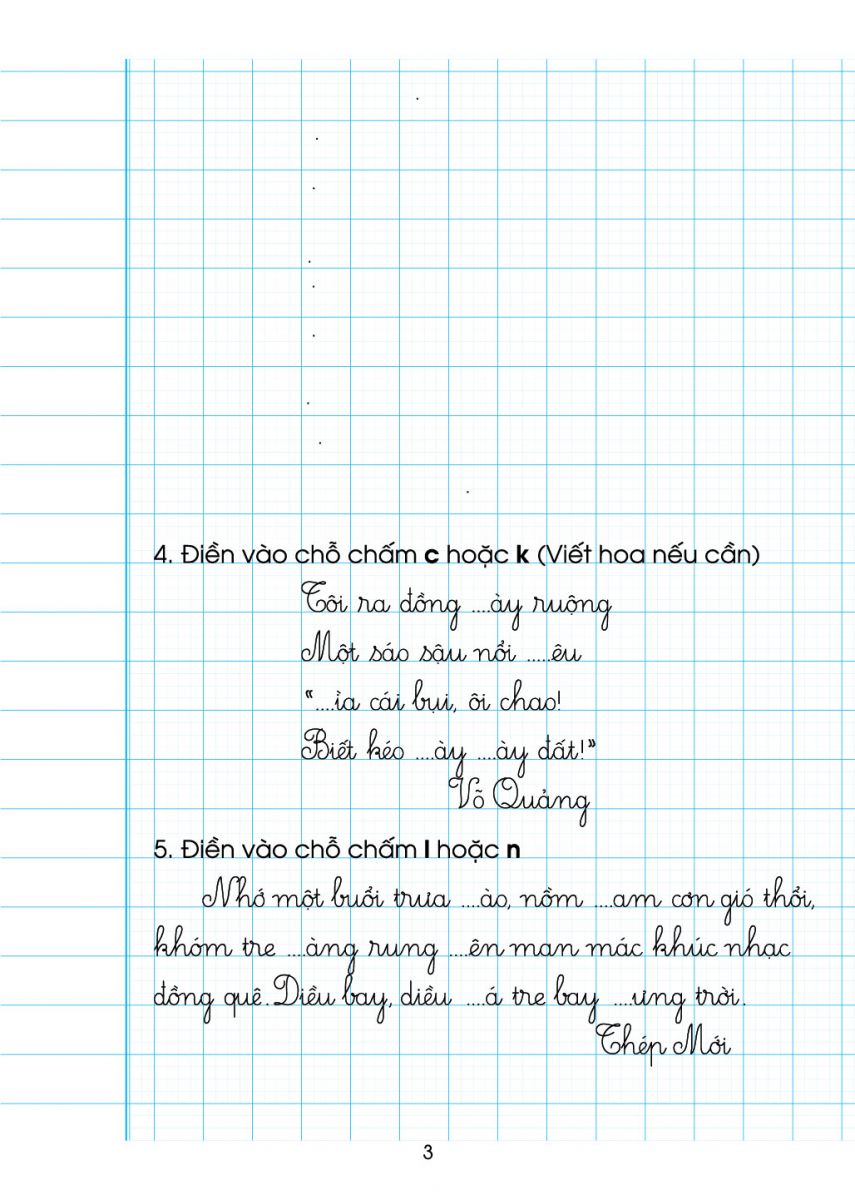 4. Điền vào chỗ chấm c hoặc k (Viết hoa nếu cần)
Tôi ra đồng ....ày ruộng
Một sáo sậu nổi .....êu
“....ỉa cái bụi, ôi chao!
Biết kéo ....ày ....ày đất!”
Võ Quảng
5. Điền vào chỗ chấm l hoặc n
Nhớ một buổi trưa ....ào, nồm ....am cơn gió thổi,
khóm tre ....àng rung ....ên man mác khúc nhạc
đồng quê. Diều bay, diều ....á tre bay ....ưng trời.
Thép Mới
3